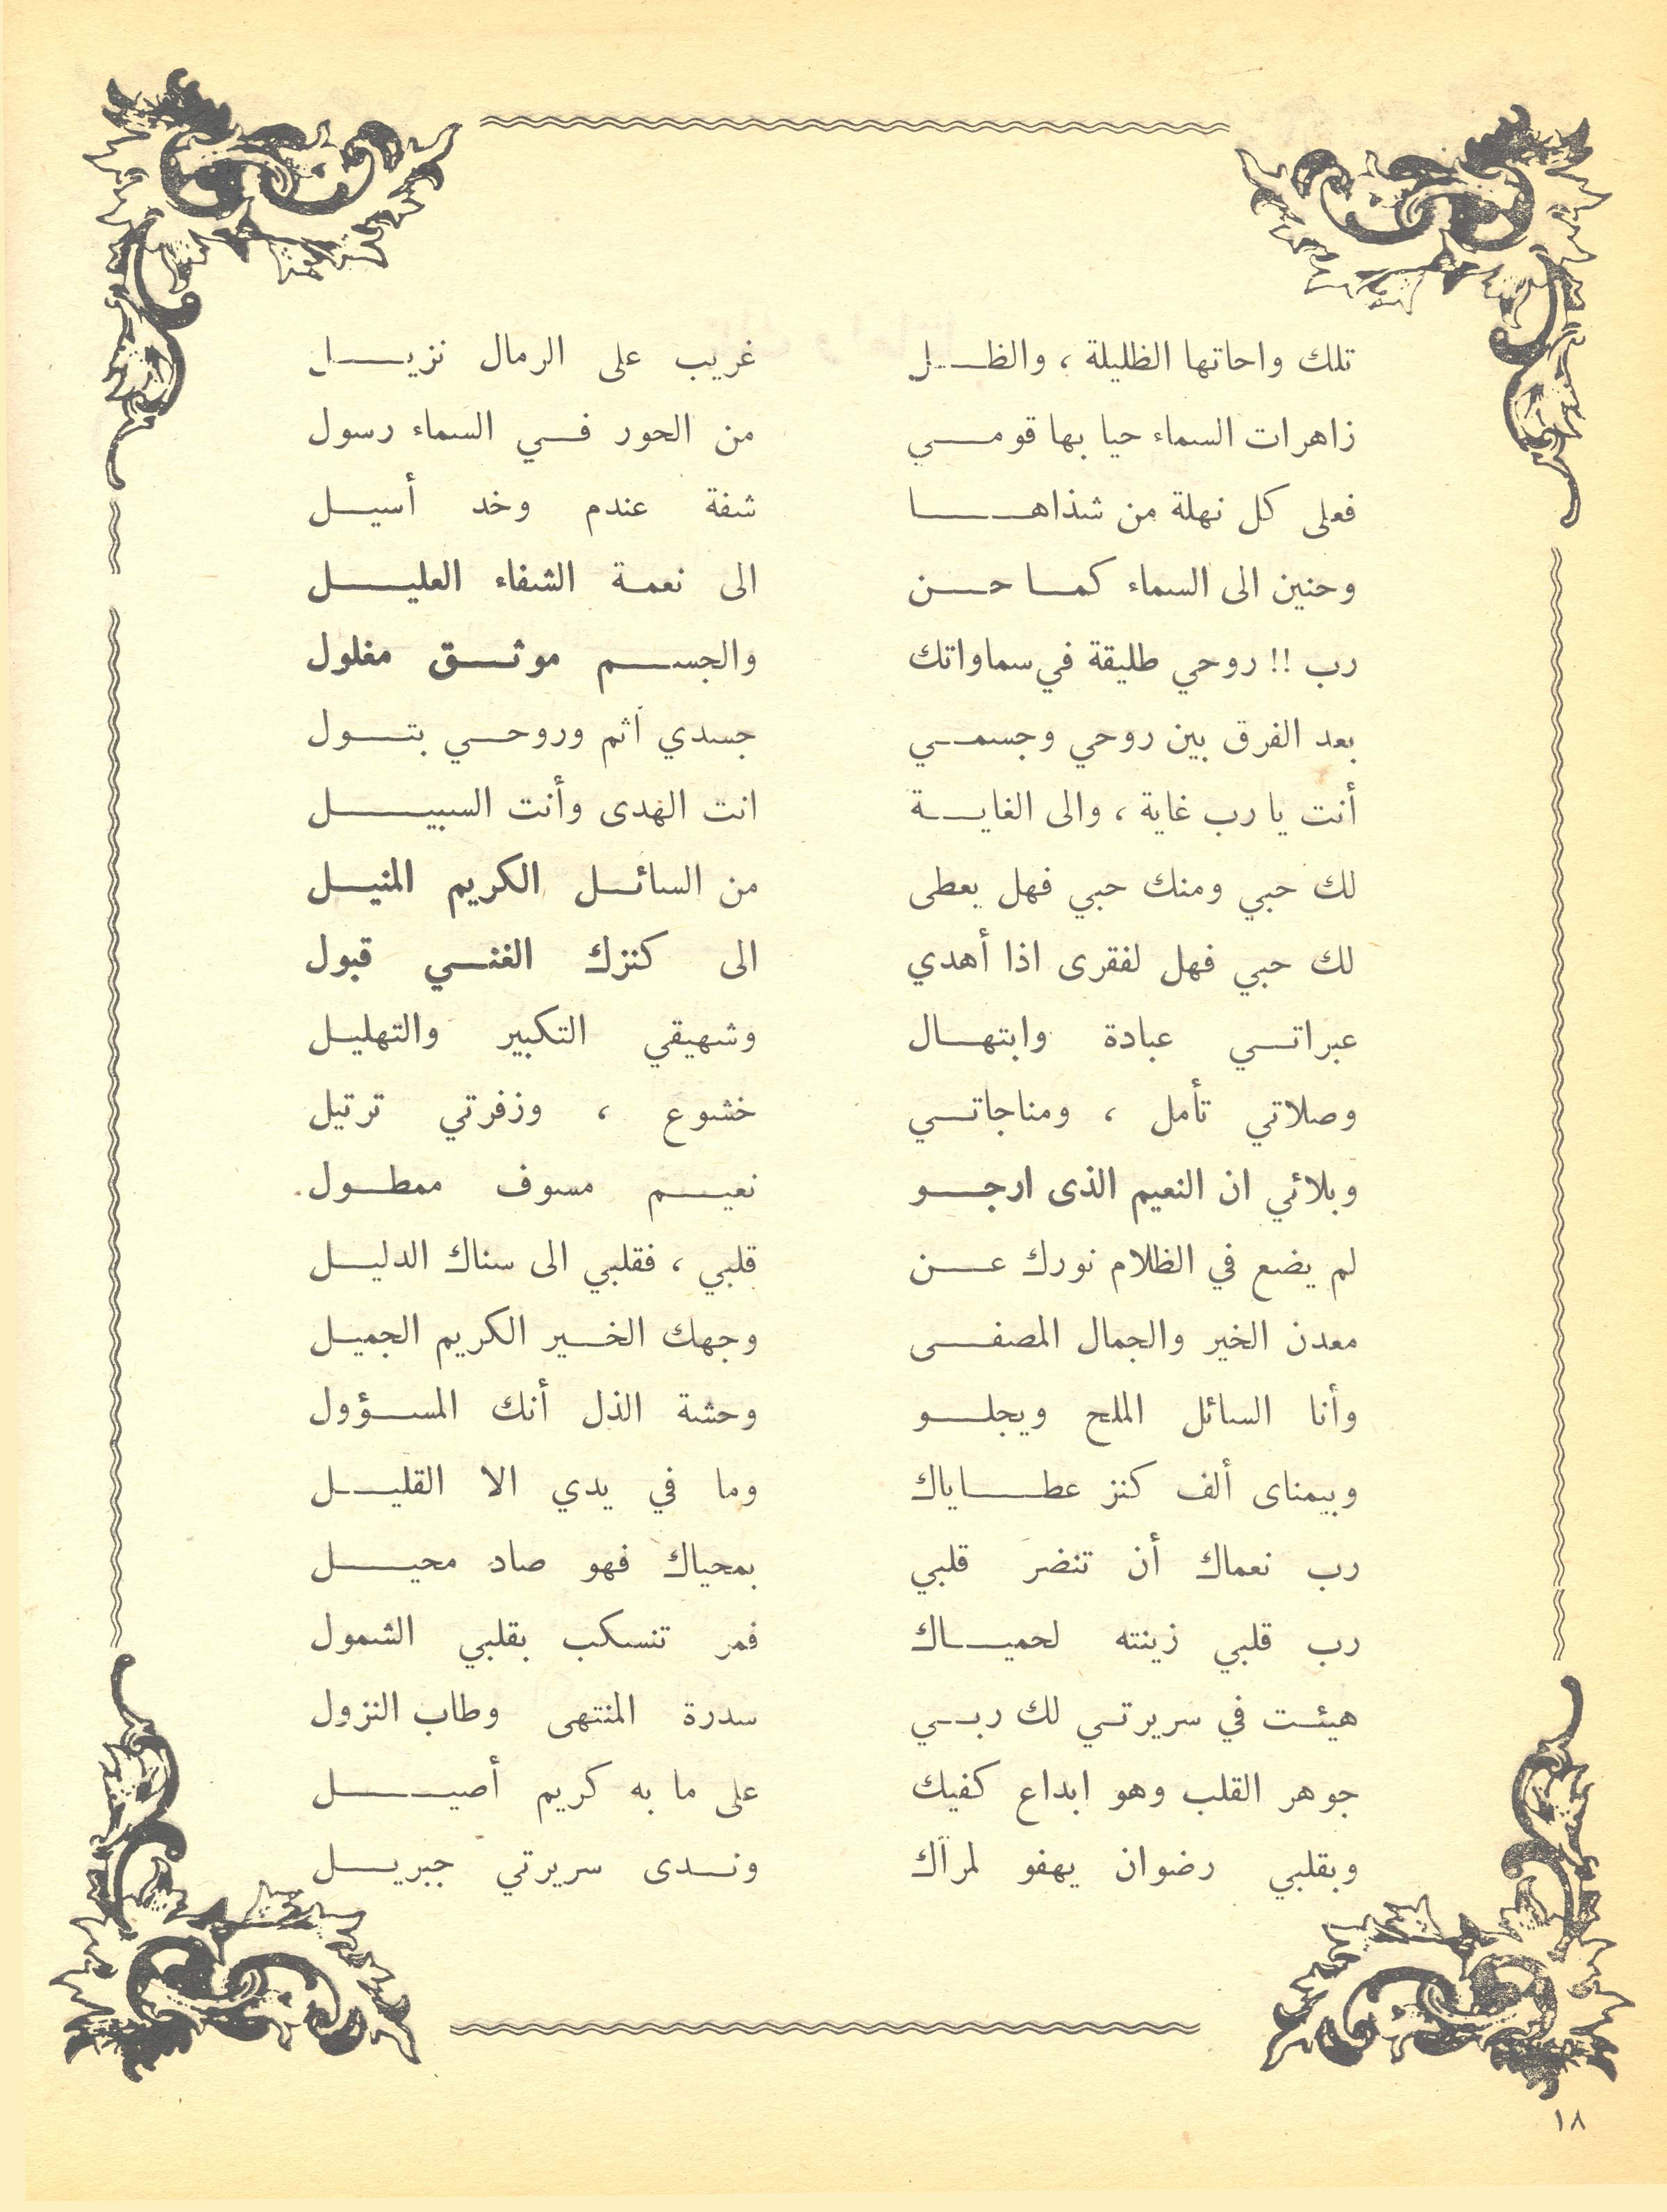 تلك واحاتها الظليلة ، والظل غريب على الرمال نزيل
زاهرات السماء حيا بها قومي من الحور في السماء رسول
فعلى كل نهلة من شذاها شفة عندم وخد أسيل
وحنين الى السماء كما حن الى نعمة الشفاء العليل
رب !! روحي طليقة في سماواتك والجسم موثق مغلول
بعد الفرق بين روحي وجسمي جسدي آثم وروحي بتول
أنت يا رب غاية ، والى الغاية انت الهدى وأنت السبيل
لك حبي ومنك حبي فهل يعطى من السائل الكريم المنيل
لك حبي فهل لفقرى اذا أهدي الى كنزك الغني قبول
عبراتي عبادة وابتهال وشهيقي التكبير والتهليل
وصلاتي تأمل ، ومناجاتي خشوع ، وزفرتي ترتيل
وبلائي ان النعيم الذى ارجو نعيم مسوف ممطول
لم يضع في الظلام نورك عن قلبي ، فقلبي الى سناك الدليل
معدن الخير والجمال المصفى وجهك الخير الكريم الجميل
وأنا السائل الملح ويجلو وحشة الذل أنك المسؤول
وبيمناى ألف كنز عطاياك وما في يدي الا القليل
رب نعماك أن تنضر قلبي بمحياك فهو صاد محيل
رب قلبي زينته لحمياك فمر تنسكب بقلبي الشمول
هيئت في سريرتي لك ربي سدرة المنتهى وطاب النزول
جوهر القلب وهو ابداع كفيك على ما به كريم أصيل
وبقلبي رضوان يهفو لمرآك وندى سريرتي جبريل
١٨